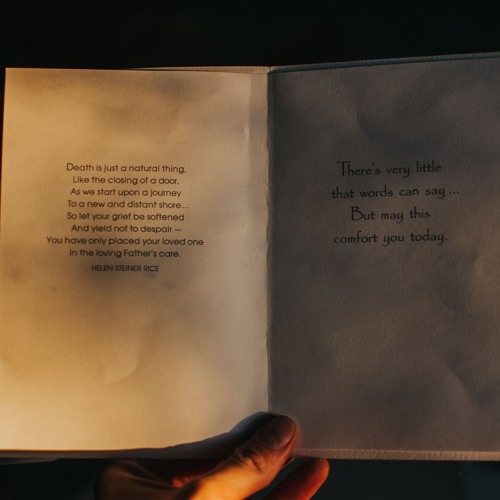 Death is just a natural thing,
Like the closing of a door,
As we start upon a journey
To a new and distant shore...
So let your grief be softened
And yield not to despair—
You have only placed your loved one
In the loving Father's care.
HELEN STEINER RICE
There's very little
that words can say...
But may this
comfort you today.